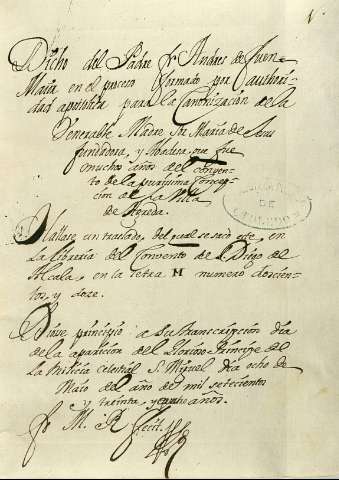 Dicho del Padre fr. Andres de Fuen
Maÿa en el proceso formado por authori
dad apostolica para la Canonizacion de la
Venerable Madre Sor Maria de Jesus
fundadora, y Abadesa, que fue
muchos años del conven
to de la purissima Concep
cion de la Villa
de Agreda.
Hallase un traslado, del qual se sacó este, en
la libreria del Convento de S. Diego de
Alcala, en la letra M numero docien
tos, y doze.
Diose principio a su transcripcion dia
de la aparicion del Glorioso Principe de
la Milicia celestial S. Miguel dia ocho de
Maio del año de mil setecientos
y treinta, y años.
fr. M. R.